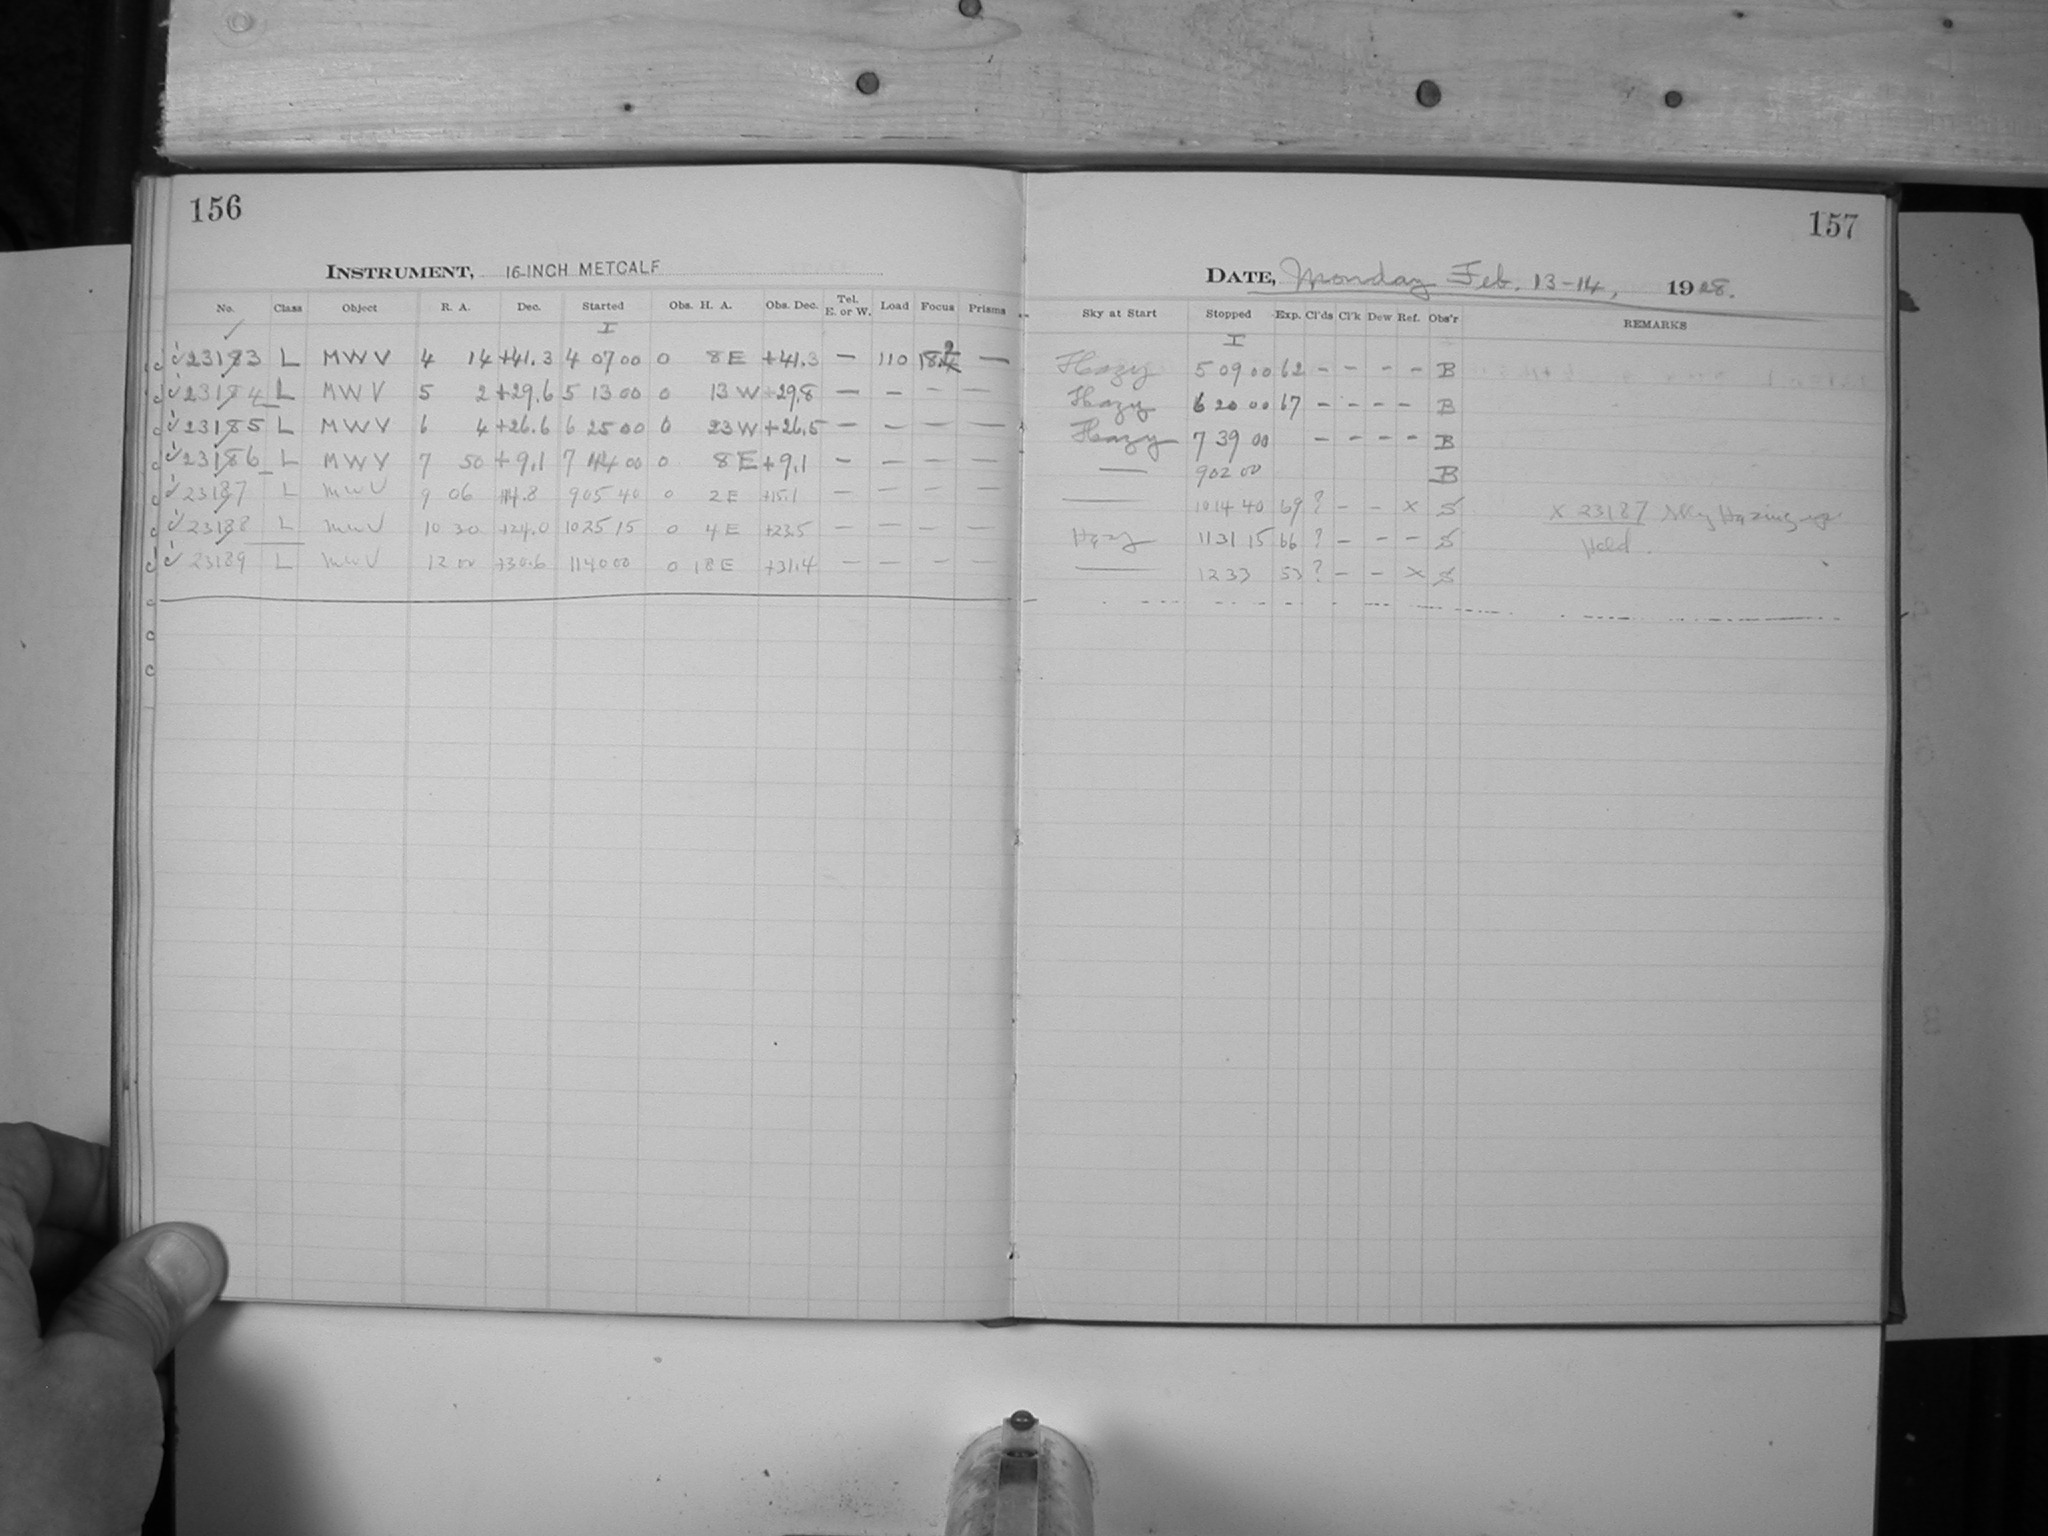 156
INSTRUMENT, 16-INCH METCALF
No. Class Object R. A. Dec. Started Obs. H. A. Obs. Dec. Tel. E. or W. Load Focus Prisms
I
23183 L MWV 4 14 +41.3 4 07 00 0 8 E +41.3 — 110 —
23184 L MWV 5 2 +29.6 5 13 00 0 13 W +29.8 — — — —
23185 L MWV 6 4 +26.6 6 25 00 0 23 W +26.5 — — — —
23186 L MWV 7 50 +9.1 7 44 00 0 8 E +9.1 — — — —
23187 L MWV 9 06 +14.8 9 05 40 0 2 E +15.1 — — — —
23188 L MWV 10 30 +24.0 10 25 15 0 4 E +23.5 — — — —
23189 L MWV 12 00 +30.6 11 40 00 0 18 E +31.4 — — — —
157
DATE, Monday Feb. 13-14, 1928.
Sky at Start Stopped Exp. Cl'ds Cl'k Dew Ref. Obs'r REMARKS
I
Hazy 5 09 00 62 – – – – B
Hazy 6 20 00 67 – – – – B
Hazy 7 39 00 – – – – B
— 9 02 00 B
— 10 14 40 69 ? – – x S x 23187 Sky Hazing up
Hazy 11 31 15 66 ? – – – S Held.
— 12 33 53 ? – – x S